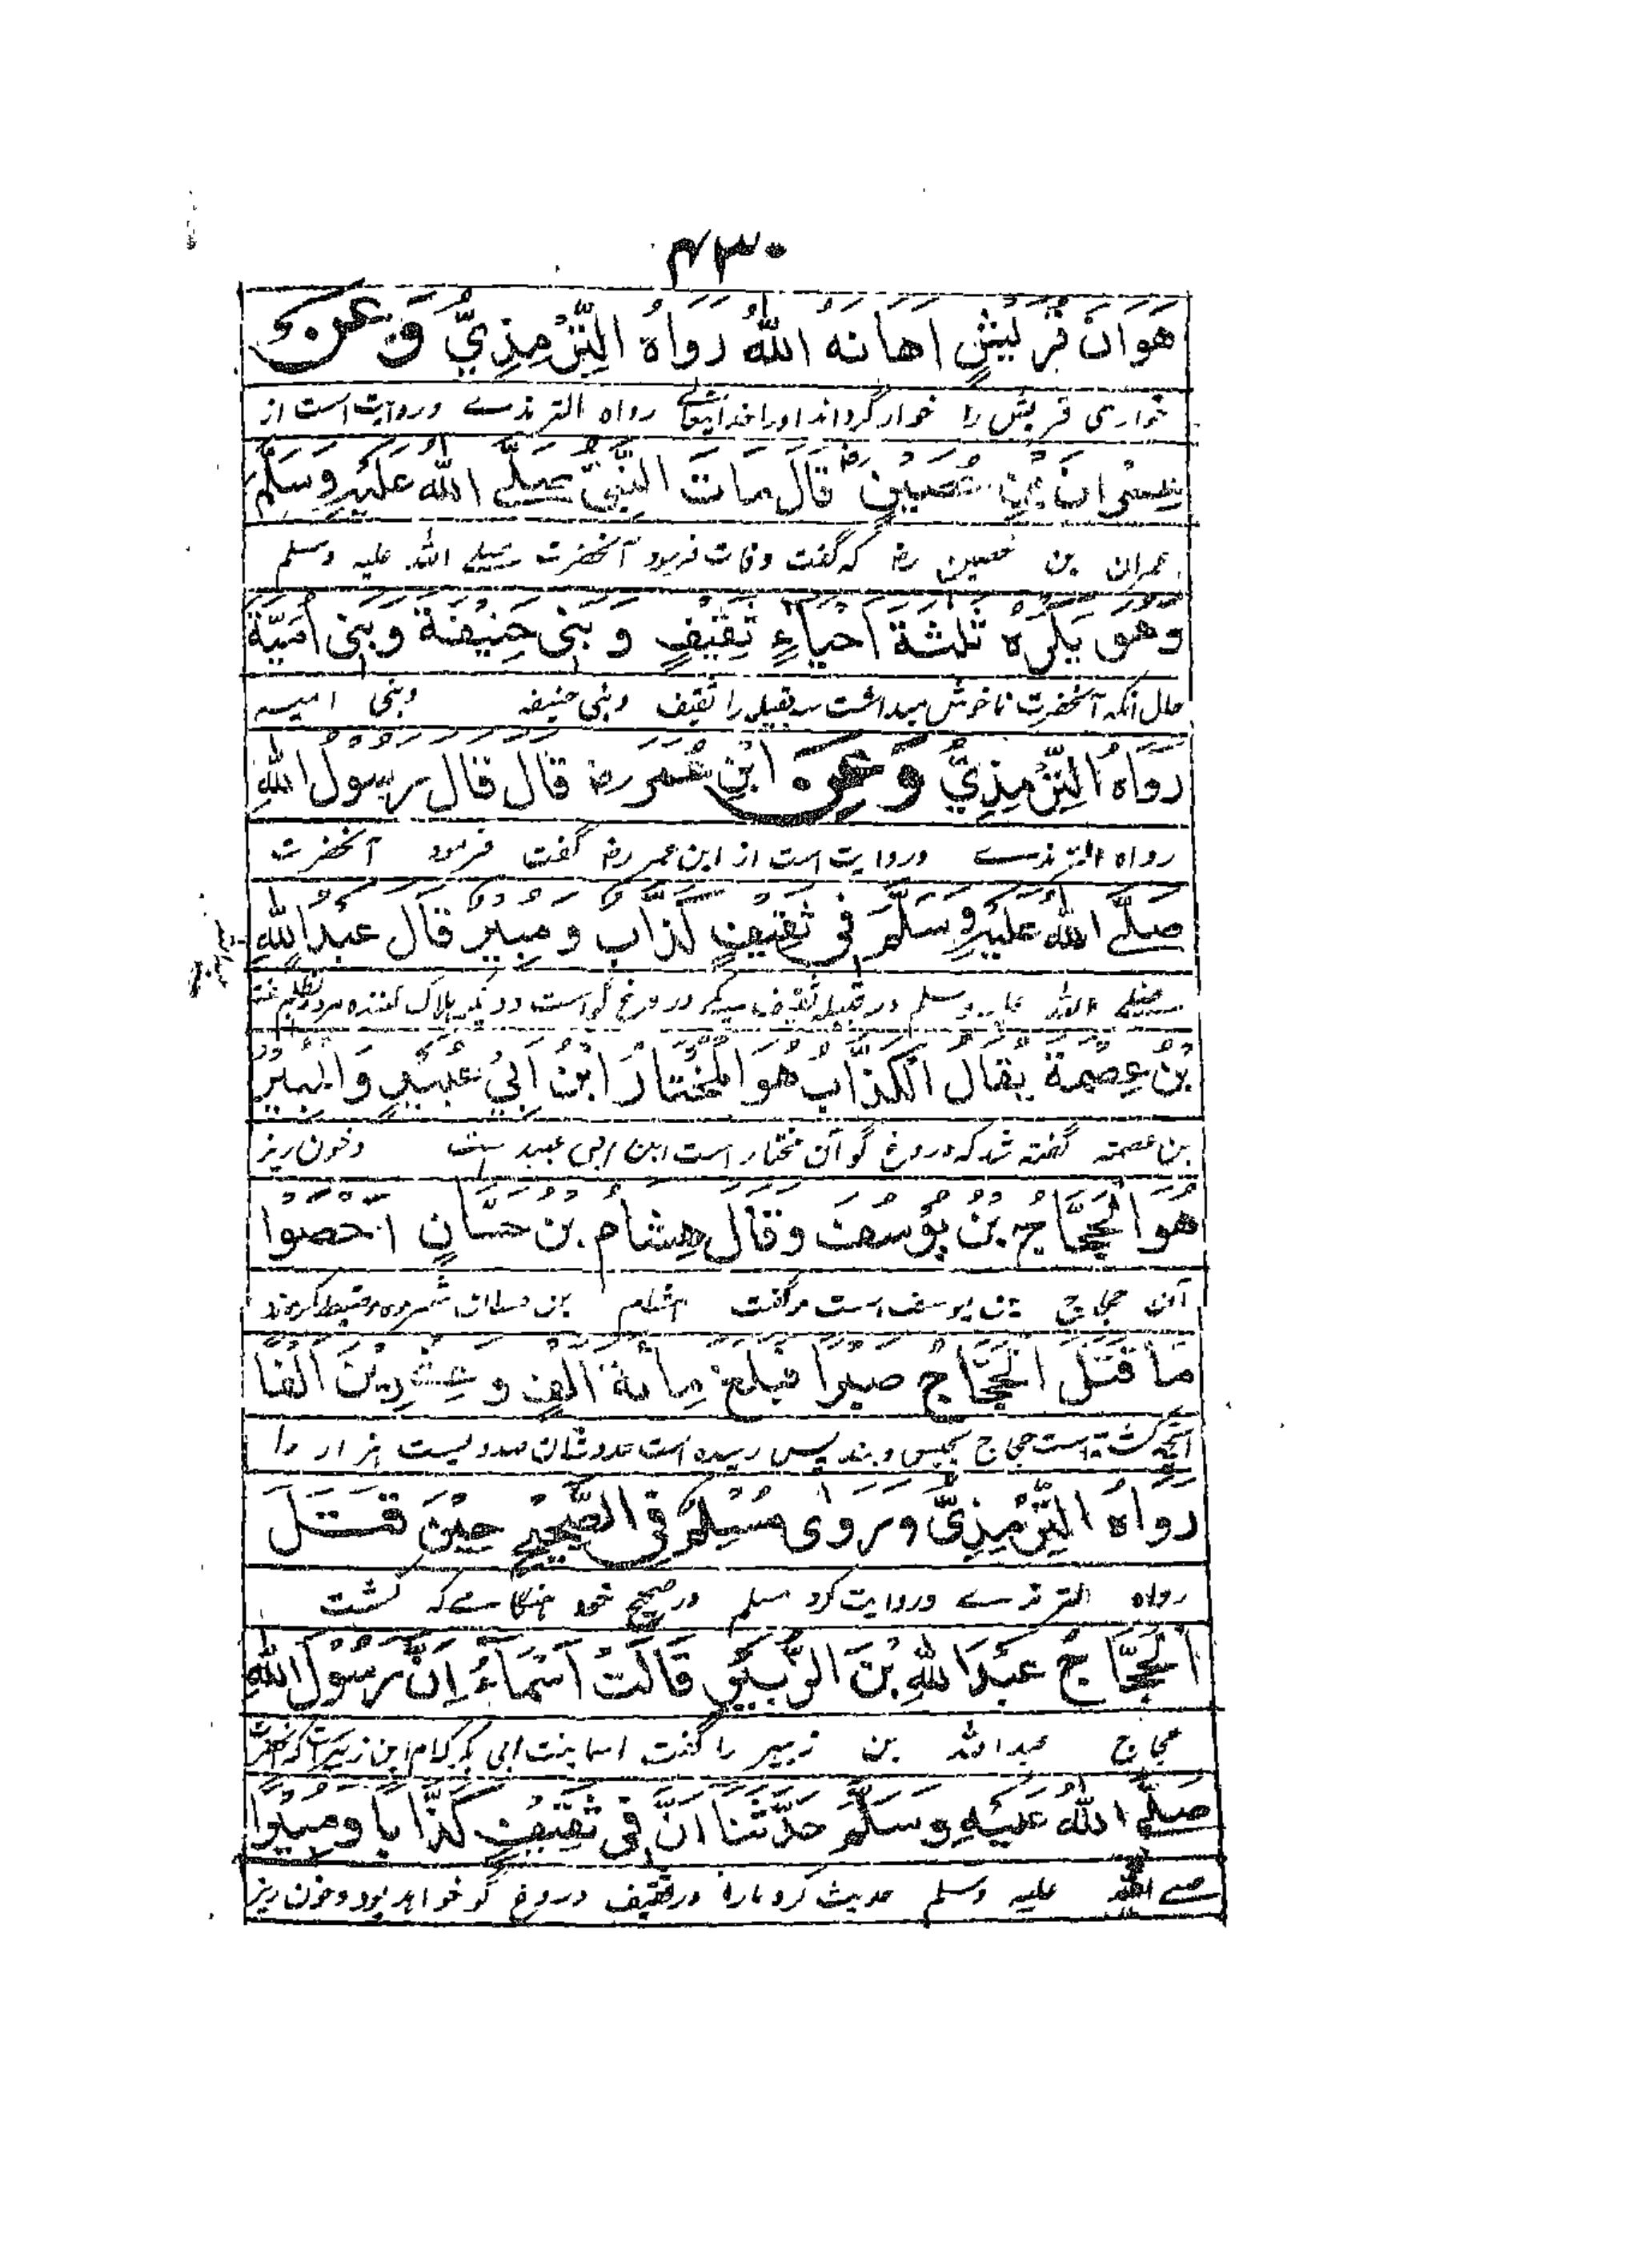 ۴۳۰
هَوَانَ قُرَيْشٍ اَهَانَهُ اللّٰهُ رَوَاهُ التِّرْمِذِيُّ وَعَنْ
خواری قریش را خوار گرداند اورا خدایتعالے رواه الترمذے وروایت است از
عِمْرَانَ بْنِ حُصَيْنٍ رض قَالَ مَاتَ النَّبِيُّ صَلَّے اللّٰهُ عَلَيْهِ وَسَلَّمَ
عمران بن حصین رض که گفت وفات فرمود آنحضرت صلے الله علیه وسلم
وَهُوَ يَكْرَهُ ثَلٰثَةَ اَحْيَاءٍ ثَقِيْفٍ وَبَنِي حَنِيْفَةَ وَبَنِي اُمَيَّةَ
حال آنکه آنحضرت ناخوش میداشت سه قبیله را ثقیف وبنی حنیفه وبنی امیه
رَوَاهُ التِّرْمِذِيُّ وَعَنْ ابْنِ عُمَرَ رض قَالَ قَالَ رَسُوْلُ اللّٰهِ
رواه الترمذے وروایت است از ابن عمر رض گفت فرمود آنحضرت
صَلَّے اللّٰهُ عَلَيْهِ وَسَلَّمَ فِي ثَقِيْفٍ كَذَّابٌ وَمُبِيْرٌ قَالَ عَبْدُ اللّٰهِ
صلے الله علیه وسلم در قبیله ثقیف دروغ گو است هلاک کننده مردم
بْنُ عِصْمَةَ يُقَالُ الْكَذَّابُ هُوَ الْمُخْتَارُ ابْنُ اَبِيْ عُبَيْدٍ وَالْمُبِيْرُ
بن عصمة گفته شد که دروغ گو آن مختار است ابن ابی عبید وخون ریز
هُوَ الْحَجَّاجُ بْنُ يُوْسُفَ وَقَالَ هِشَامُ بْنُ حَسَّانٍ اَحْصَوْا
آن حجاج بن یوسف است وگفت هشام بن حسان شمرده وضبط کرده اند
مَا قَتَلَ الْحَجَّاجُ صَبْرًا فَبَلَغَ مِائَةَ اَلْفٍ وَعِشْرِيْنَ اَلْفًا
آنچه کشته است حجاج بحبس وبند پس رسیده است عدد شان صد وبیست هزار را
رَوَاهُ التِّرْمِذِيُّ وَرَوٰى مُسْلِمٌ فِي الصَّحِيْحِ حِيْنَ قَتَلَ
رواه الترمذے وروایت کرد مسلم در صحیح خود هنگامے که کشت
الْحَجَّاجُ عَبْدَ اللّٰهِ بْنَ الزُّبَيْرِ قَالَتْ اَسْمَاءُ اِنَّ رَسُوْلَ اللّٰهِ
حجاج عبد الله بن زبیر را گفت اسما بنت ابی بکر که مادر ابن زبیر است که آنحضرت
صَلَّے اللّٰهُ عَلَيْهِ وَسَلَّمَ حَدَّثَنَا اَنَّ فِي ثَقِيْفٍ كَذَّابًا وَمُبِيْرًا
صلے الله علیه وسلم حدیث کرد مارا در ثقیف دروغ گو خواهد بود وخون ریز